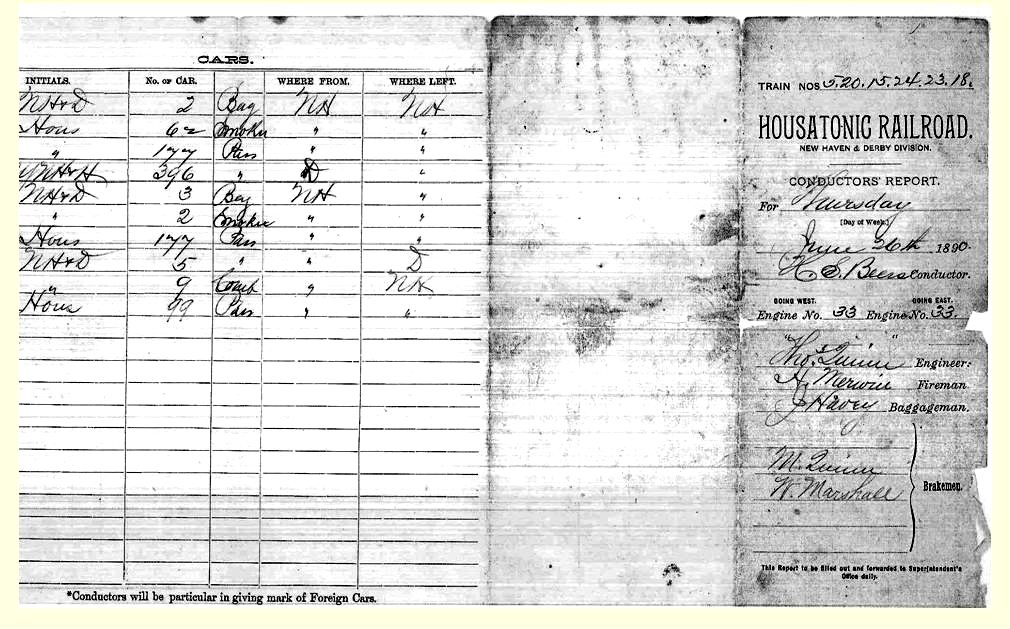 CARS.
INITIALS. No. of CAR. WHERE FROM. WHERE LEFT.
NH&D 2 Bag NH NH
Hous 62 Smoker " "
" 177 Pass " "
NH&H 396 " D "
NH&D 3 Bag NH "
" 2 Smoker " "
Hous 177 Pass " "
NH&D 5 " " D
" 9 Comb " NH
Hous 99 Pass " "
*Conductors will be particular in giving mark of Foreign Cars.
TRAIN NOS 5.20.15.24.23.18.
HOUSATONIC RAILROAD.
NEW HAVEN & DERBY DIVISION.
CONDUCTORS' REPORT.
For Thursday
[Day of Week.]
June 26th 1890.
H S Beers Conductor.
GOING WEST. GOING EAST.
Engine No. 33 Engine No. 33.
"Tho. Quinn" Engineer.
H. Merwin Fireman.
J Havey Baggageman.
M. Quinn
W. Marshall
Brakemen.
This Report to be filled out and forwarded to Superintendent's
Office daily.